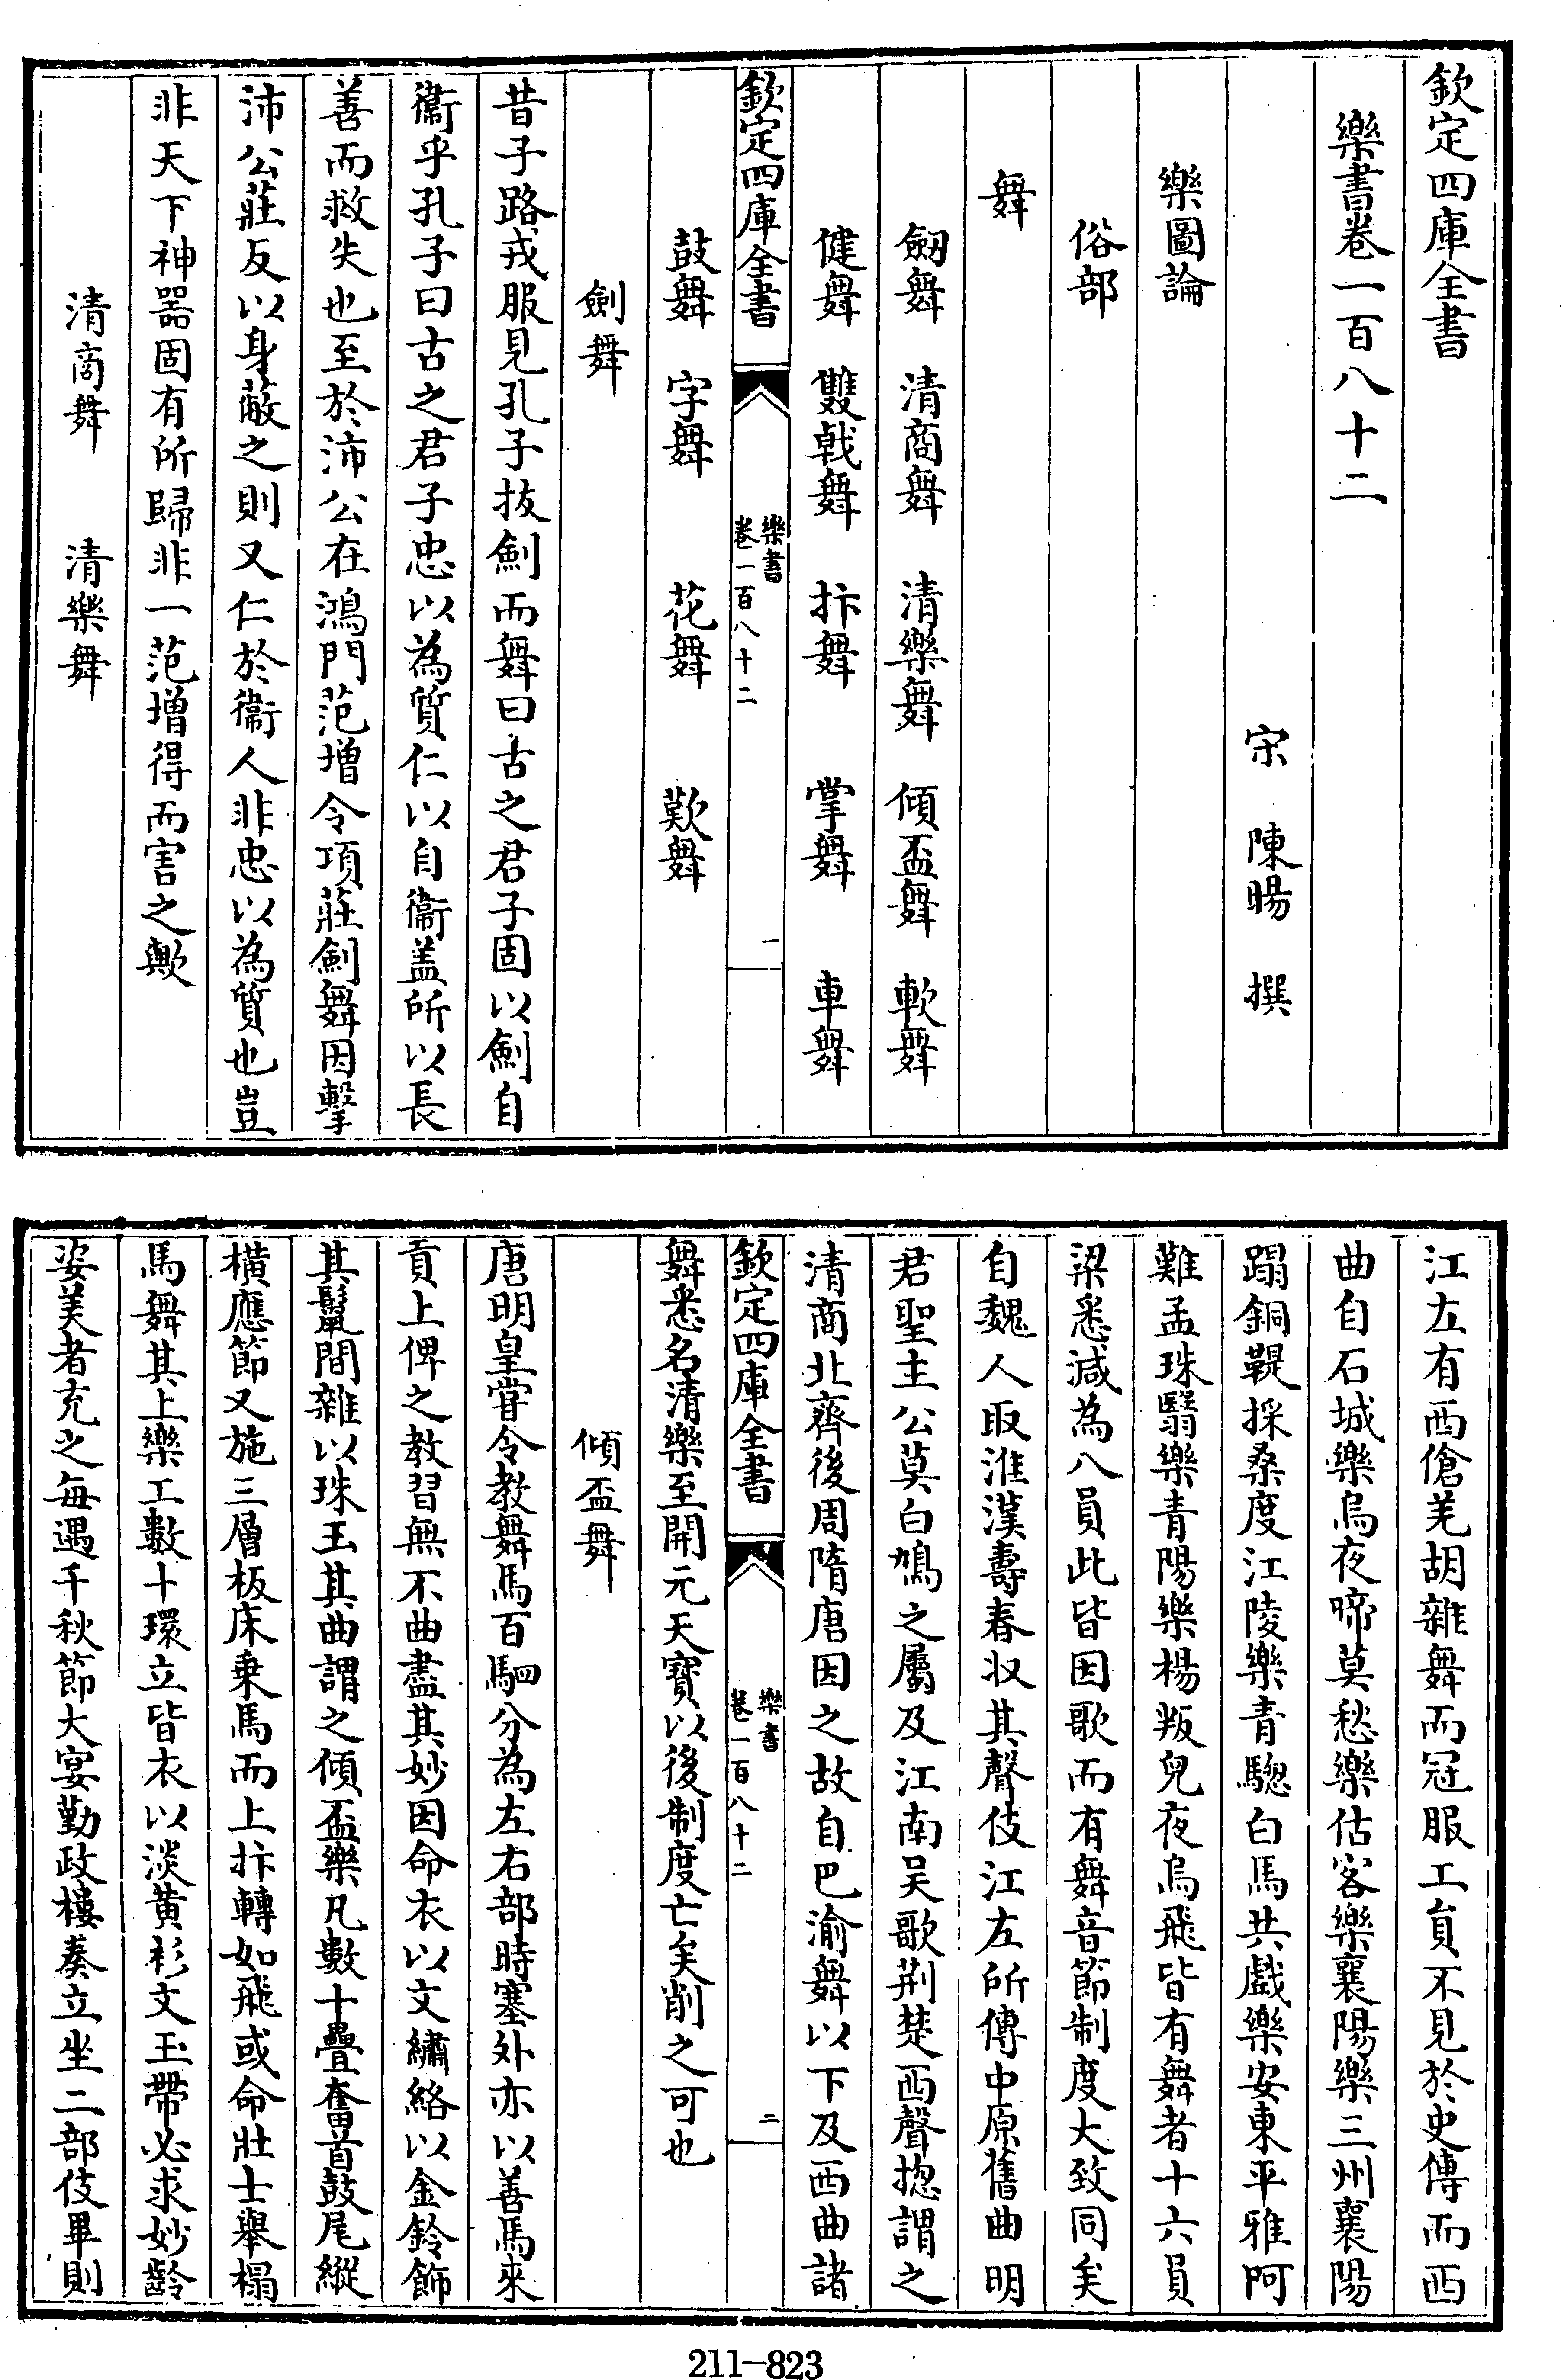 欽定四庫全書
樂書卷一百八十二
宋　陳暘　撰
樂圖論
俗部
舞
劔舞　清商舞　清樂舞　傾盃舞　軟舞
健舞　雙戟舞　抃舞　掌舞　車舞
欽定四庫全書　樂書卷一百八十二　一
鼓舞　字舞　花舞　歎舞
劍舞
昔子路戎服見孔子拔劍而舞曰古之君子固以劍自
衞乎孔子曰古之君子忠以為質仁以自衞盖所以長
善而救失也至於沛公在鴻門范增令項莊劍舞因擊
沛公莊反以身蔽之則又仁於衞人非忠以為質也豈
非天下神器固有所歸非一范增得而害之歟
清商舞　清樂舞
江左有西傖羌胡雜舞而冠服工員不見於史傳而西
曲自石城樂烏夜啼莫愁樂估客樂襄陽樂三州襄陽
蹋銅鞮採桑度江陵樂青驄白馬共戲樂安東平雅阿
難孟珠翳樂青陽樂楊叛兒夜烏飛皆有舞者十六員
梁悉減為八員此皆因歌而有舞音節制度大致同矣
自魏人取淮漢壽春收其聲伎江左所傳中原舊曲明
君聖主公莫白鳩之屬及江南吴歌荆楚西聲揔謂之
清商北齊後周隋唐因之故自巴渝舞以下及西曲諸
欽定四庫全書　樂書卷一百八十二　二
舞悉名清樂至開元天寳以後制度亡矣削之可也
傾盃舞
唐明皇甞令教舞馬百駟分為左右部時塞外亦以善馬來
貢上俾之教習無不曲盡其妙因命衣以文繡絡以金鈴飾
其鬛間雜以珠玉其曲謂之傾盃樂凡數十疊奮首鼓尾縱
橫應節又施三層板床乗馬而上抃轉如飛或命壯士舉榻
馬舞其上樂工數十環立皆衣以淡黄衫文玉帶必求妙齡
姿美者充之每遇千秋節大宴勤政樓奏立坐二部伎畢則
211-823